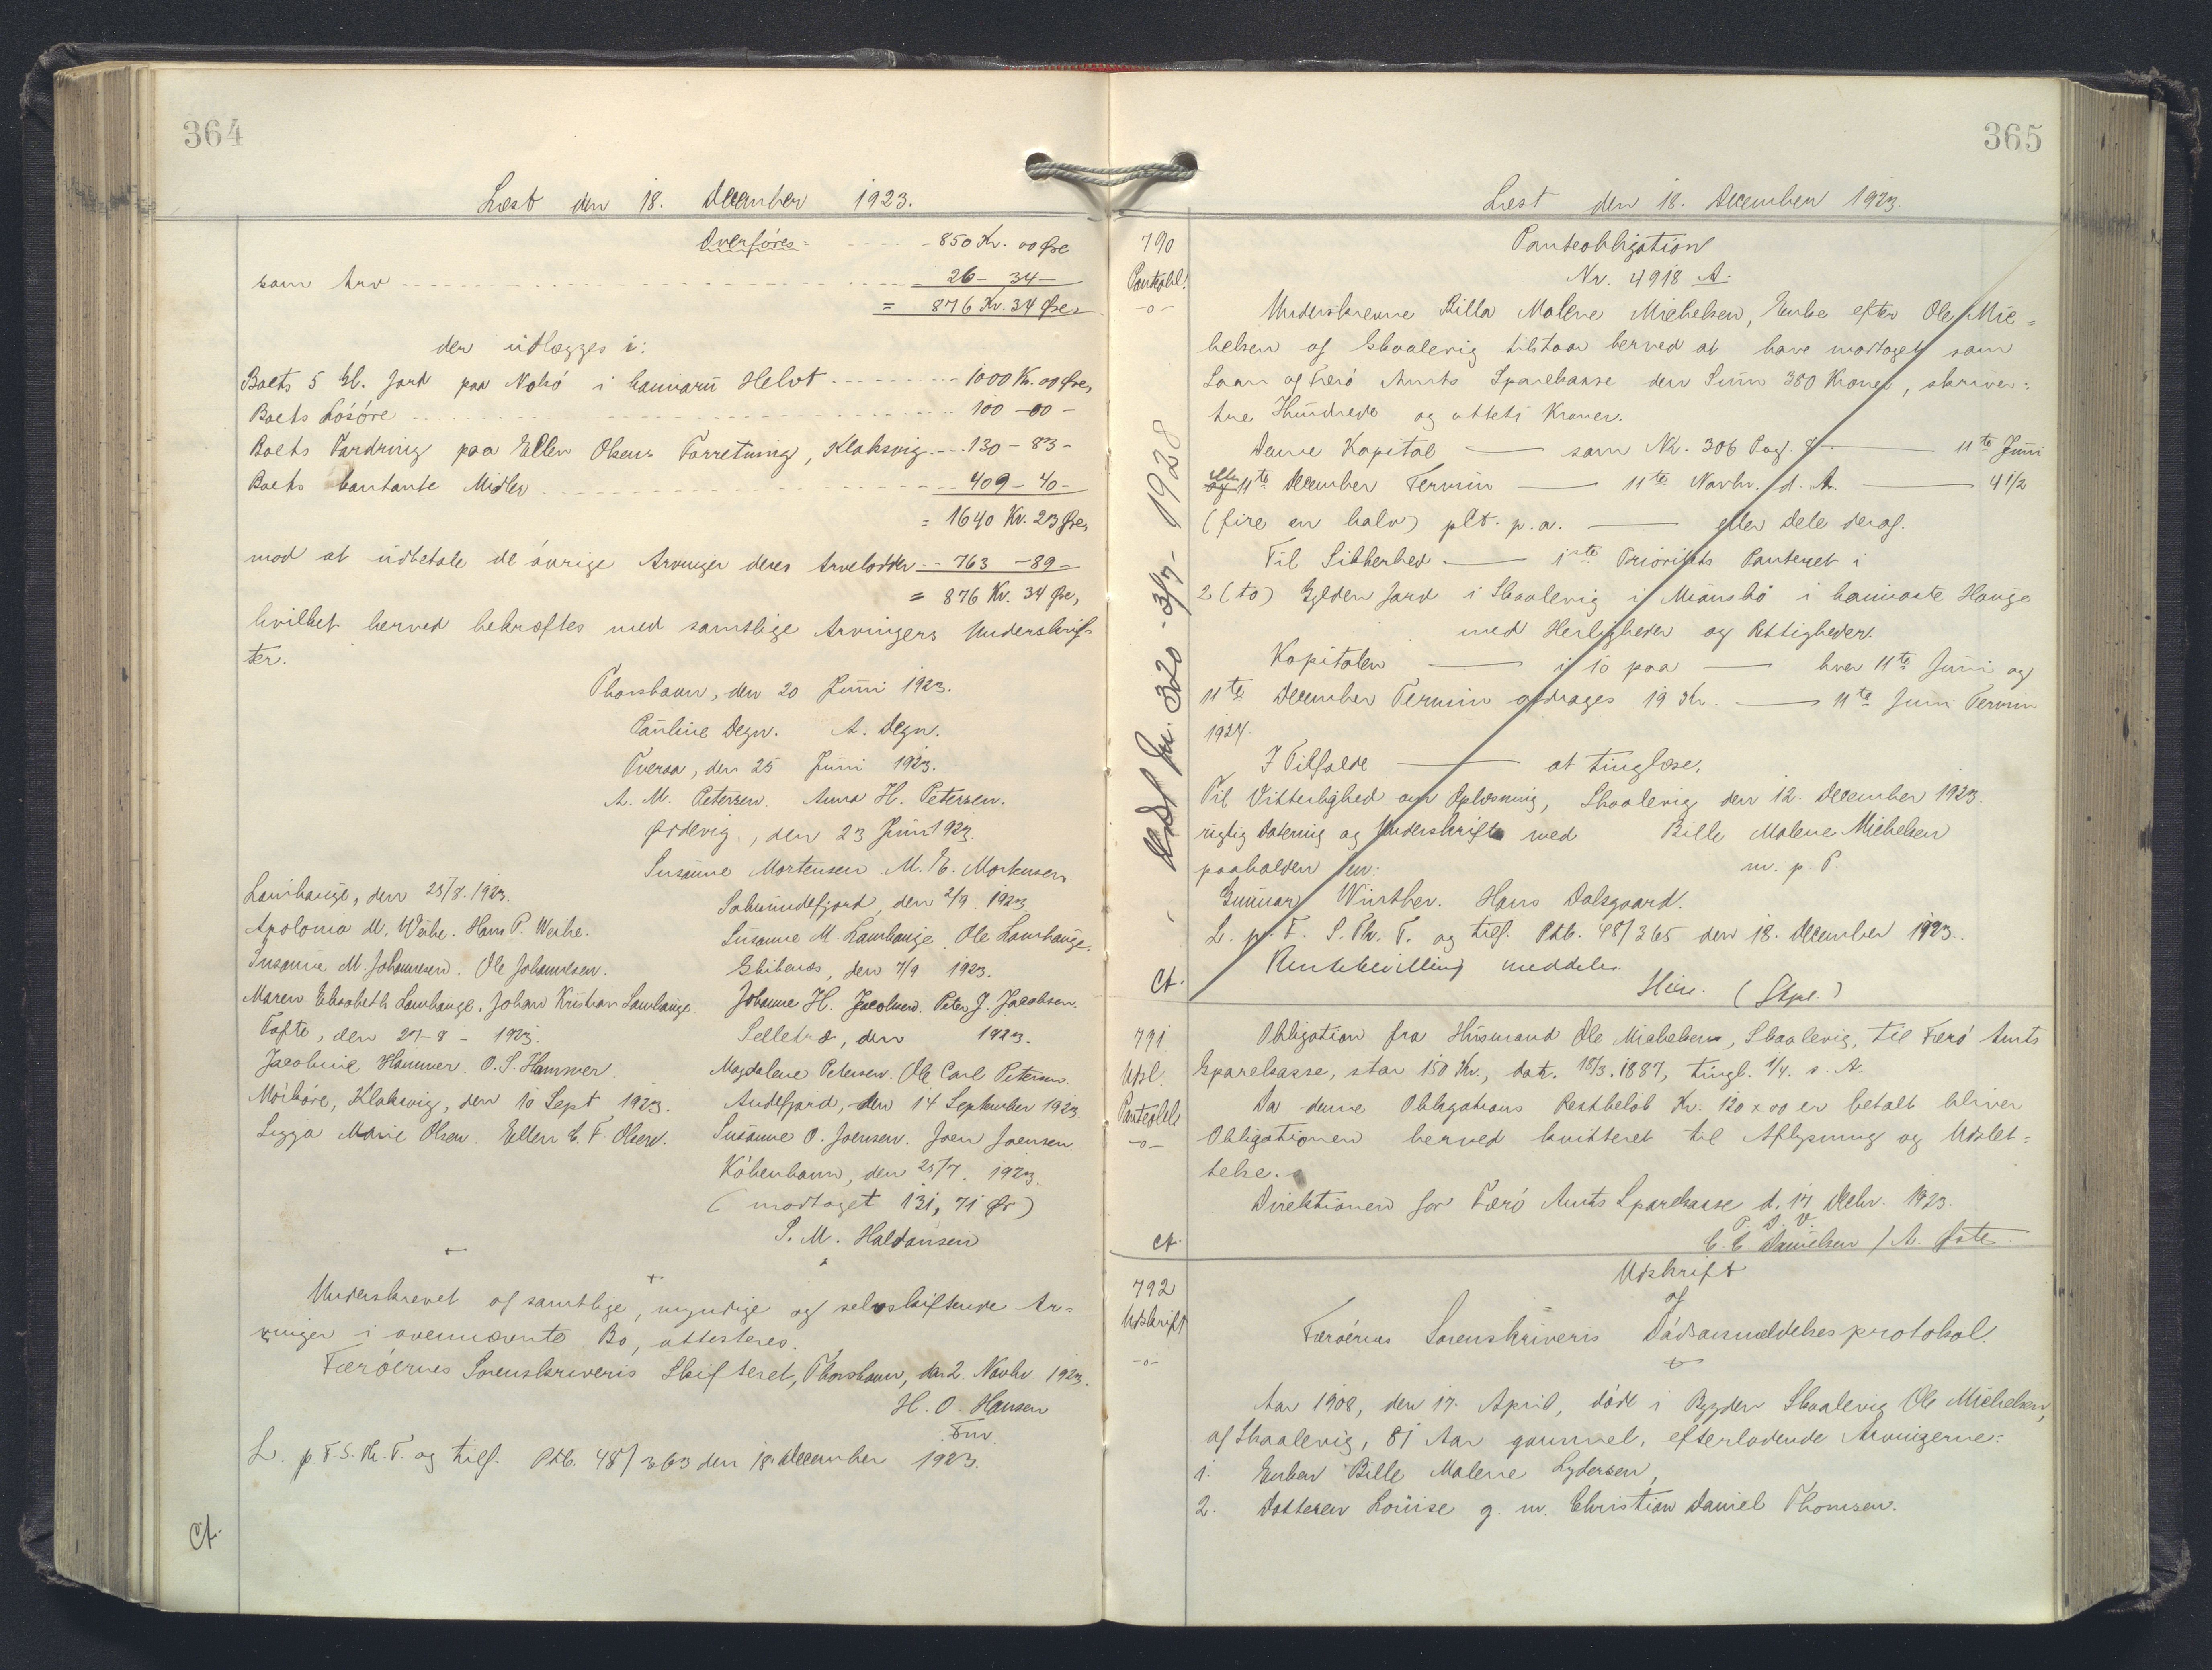 364
Læst den 18. December 1923.
Overføres: - 850 Kr. 00 Øre
som Arv 26 - 34 -
= 876 Kr. 34 Øre,
der udlægges i:
Boets 5 Gl. Jord paa Nolsø i hauvarū Helvt 1000 Kr. 00 Øre,
Boets Løsøre 100 - 00 -
Boets Fordring paa Ellen Olsens Forretning, Klaksvig 130 - 83 -
Boets kontante Midler 409 - 40 -
= 1640 Kr. 23 Øre,
mod at udbetale de øvrige Arvinger deres Arvelodder 763 - 89 -
= 876 Kr. 34 Øre,
hvilket herved bekræftes med samtlige Arvingers Underskrif-
ter.
Thorshavn, den 20 Juni 1923.
Pauline Degn. A. Degn.
Tveraa, den 25 Juni 1923.
A. M. Petersen. Anna H. Petersen.
Ördevig, den 23 Juni 1923.
Susanne Mortensen M. E. Mortensen
Lamhauge, den 25/8. 1923.
Apolonia M. Weihe. Hans P. Weihe.
Susanne M. Johannesen. Ole Johannesen.
Maren Elisabeth Lamhauge. Johan Kristian Lamhauge
Tofte, den 27-8 - 1923.
Jacobine Hammer. O. S. Hammer.
Möiböre, Klaksvig, den 10 Sept 1923.
Sigga Marie Olsen. Ellen E. F. Olsen.
Salmundefjord, den 2/9. 1923
Susanne M. Lamhauge. Ole Lamhauge.
Glibenæs, den 7/9 1923.
Johanne H. Jacobsen. Peter J. Jacobsen.
Selletræ, den 1923.
Magdalene Petersen. Ole Carl Petersen.
Andefjord, den 14 September 1923
Susanne O. Joensen. Joen Joensen.
København, den 25/7. 1923.
(modtaget 131,71 Ør)
S. M. Haldansen
Underskrevet af samtlige, myndige og selvskiftende Ar-
vinger i ovennævnte Bo, attesteres.
Færøernes Sorenskriveris Skifteret, Thorshavn, den 2. Novbr. 1923.
H. O. Hansen
Fm.
L. p. F. S. Th. T. og tilf. Ptb. 48/363 den 18 December 1923.
Ct.
365
Læst den 18. December 1923.
790
Panteobl.
-o-
Panteobligation
Nr. 4918 A.
Underskrevne Billa Malene Michelsen, Enke efter Ole Mic-
helsen af Skaalevig tilstaar herved at have modtaget som
Laan af Færø Amts Sparekasse den Sum 380 Kroner, skriver:
tre Hundrede og otteti Kroner.
Denne Kapital — som Nr. 306 Pag. 8 — 11te Juni
eller 11te December Termin — 11te Novbr. d. A. — 4 1/2
(fire en halv) pCt. p.a. — eller Dele deraf.
Til Sikkerhed — 1ste Prioritets Panteret i
2 (to) Gylden Jord i Skaalevig i Miansbø i hauvaste Hauge
med Herligheder og Rettigheder.
Kapitalen — i 10 paa — hver 11te Juni og
11te December Termin afdrages 19 Kr. — 11te Juni Termin
1924.
I Tilfælde — at tinglæse.
Til Vitterlighed om Oplæsning, Skaalevig den 12. December 1923.
rigtig Datering og Underskrift med Bille Malene Michelsen
paaholden Pen: m. p. P.
Gunnar Winther. Hans Dalsgaard.
L. p. F. S. Th. T. og tilf. Ptb. 48/365 den 18. December 1923.
Rentebevilling meddeles.
Ct. (Stpl.)
Udsl. Jn. 320 - 3/7 - 1928
791
Udsl.
Panteobl.
-o-
Obligation fra Husmand Ole Michelsen, Skaalevig, til Færø Amts
Sparekasse, stor 150 Kr., dat. 18/3. 1887, tingl. 1/4. s. A.
Da denne Obligations Restbeløb Kr. 120 x 00 er betalt bliver
Obligationen herved kvitteret til Aflysning og Udslet-
telse.
Direktionen for Færø Amts Sparekasse d. 17 Decbr. 1923.
P. D. V.
C. C. Danielsen / A. Øste
Ct.
792
Udskrift
-o-
Udskrift
af
Færøernes Sorenskriveris Dødsanmeldelsesprotokol.
Aar 1908, den 17. April, døde i Bygden Skaalevig Ole Michelsen,
af Skaalevig, 81 Aar gammel, efterladende Arvingerne:
1. Enken Bille Malene Lydersen,
2. Datteren Louise g. m. Christian Daniel Thomsen.